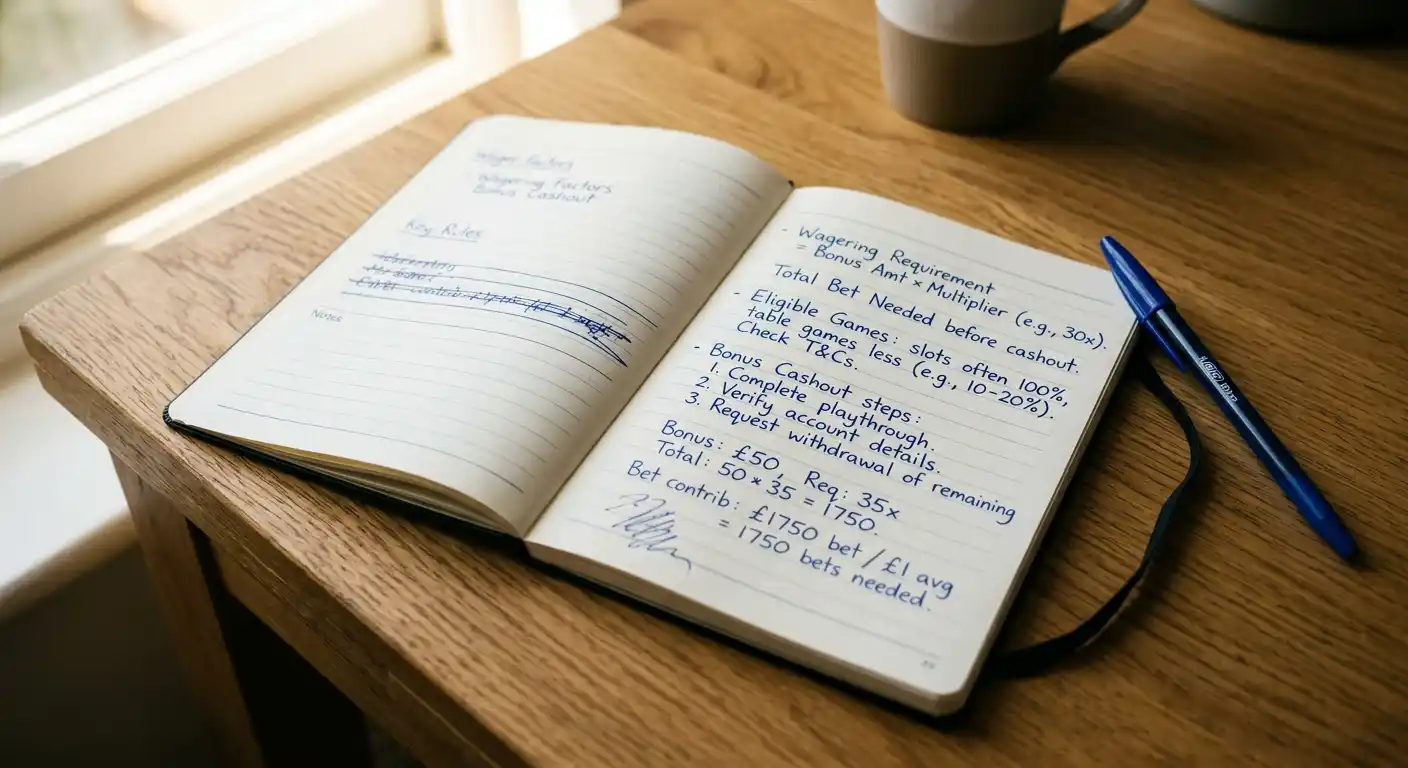 Wager Factors
Wagering Factors
Bonus Cashout
Key Rules
Notes
- Wagering Requirement
= Bonus Amt × Multiplier (e.g., 30x).
Total Bet Needed before cashout.
- Eligible Games: slots often 100%,
table games less (e.g., 10-20%).
Check T&Cs.
- Bonus Cashout steps:
1. Complete playthrough.
2. Verify account details.
3. Request withdrawal of remaining
Bonus: £50, Req: 35x
Total: 50 * 35 = 1750.
Bet contrib: £1750 bet / £1 avg
= 1750 bets needed.